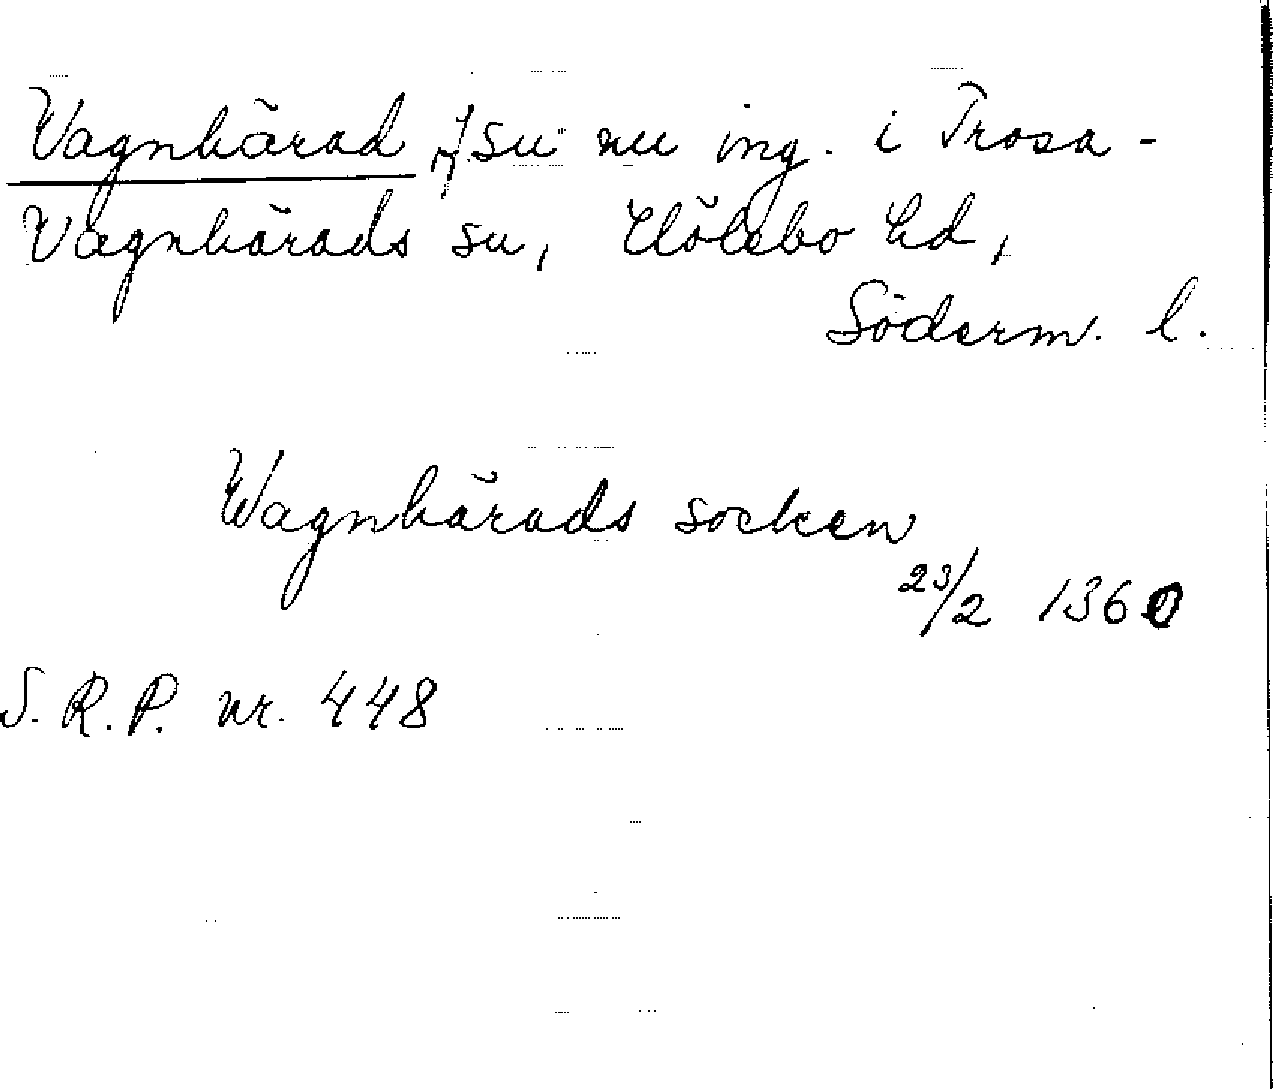 Vagnhärad f. sn nu ing. i Trosa-
Vagnhärads sn, Hölebo hd,
Söderm. l.
Wagnhärads socken
23/2 1360
S. R. P. nr. 448